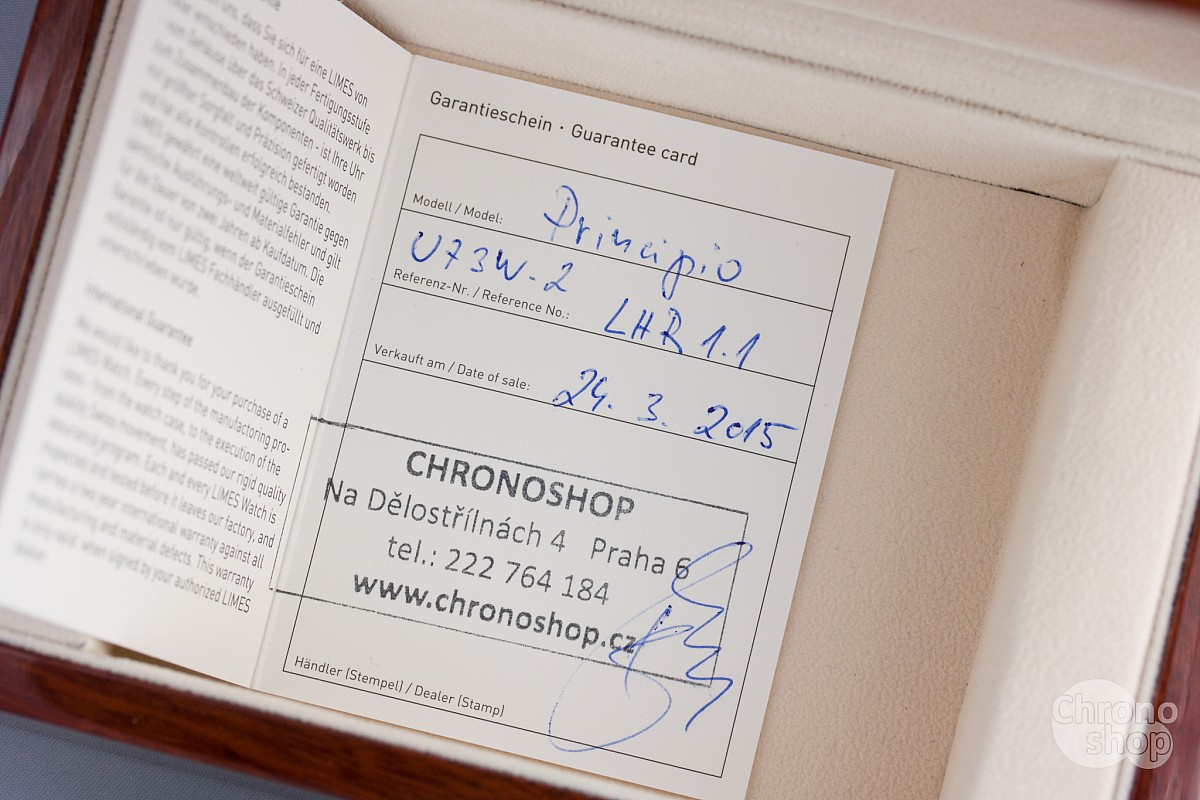 uns, dass Sie sich für eine LIMES von
entschieden haben. In jeder Fertigungsstufe
vom Gehäuse über das Schweizer Qualitätswerk bis
zum Zusammenbau der Komponenten - ist Ihre Uhr
mit größter Sorgfalt und Präzision gefertigt worden
und hat alle Kontrollen erfolgreich bestanden.
LIMES gewährt eine weltweit gültige Garantie gegen
sämtliche Ausführungs- und Materialfehler und gilt
für die Dauer von zwei Jahren ab Kaufdatum. Die
Garantie ist nur gültig, wenn der Garantieschein
vollständig vom LIMES Fachhändler ausgefüllt und
unterschrieben wurde.
International Guarantee
We would like to thank you for your purchase of a
LIMES Watch. Every step of the manufactoring pro-
cess - from the watch case, to the execution of the
quality Swiss movement, has passed our rigid quality
assurance program. Each and every LIMES Watch is
inspected and tested before it leaves our factory, and
carries a two year international warranty against all
manufacturing and material defects. This warranty
is only valid when signed by your authorized LIMES
dealer.
Garantieschein · Guarantee card
Modell / Model: Principio
U73W-2
Referenz-Nr. / Reference No.: LHR 1.1
Verkauft am / Date of sale: 24. 3. 2015
CHRONOSHOP
Na Dělostřílnách 4 Praha 6
tel.: 222 764 184
www.chronoshop.cz
Händler (Stempel) / Dealer (Stamp)
Chrono
shop